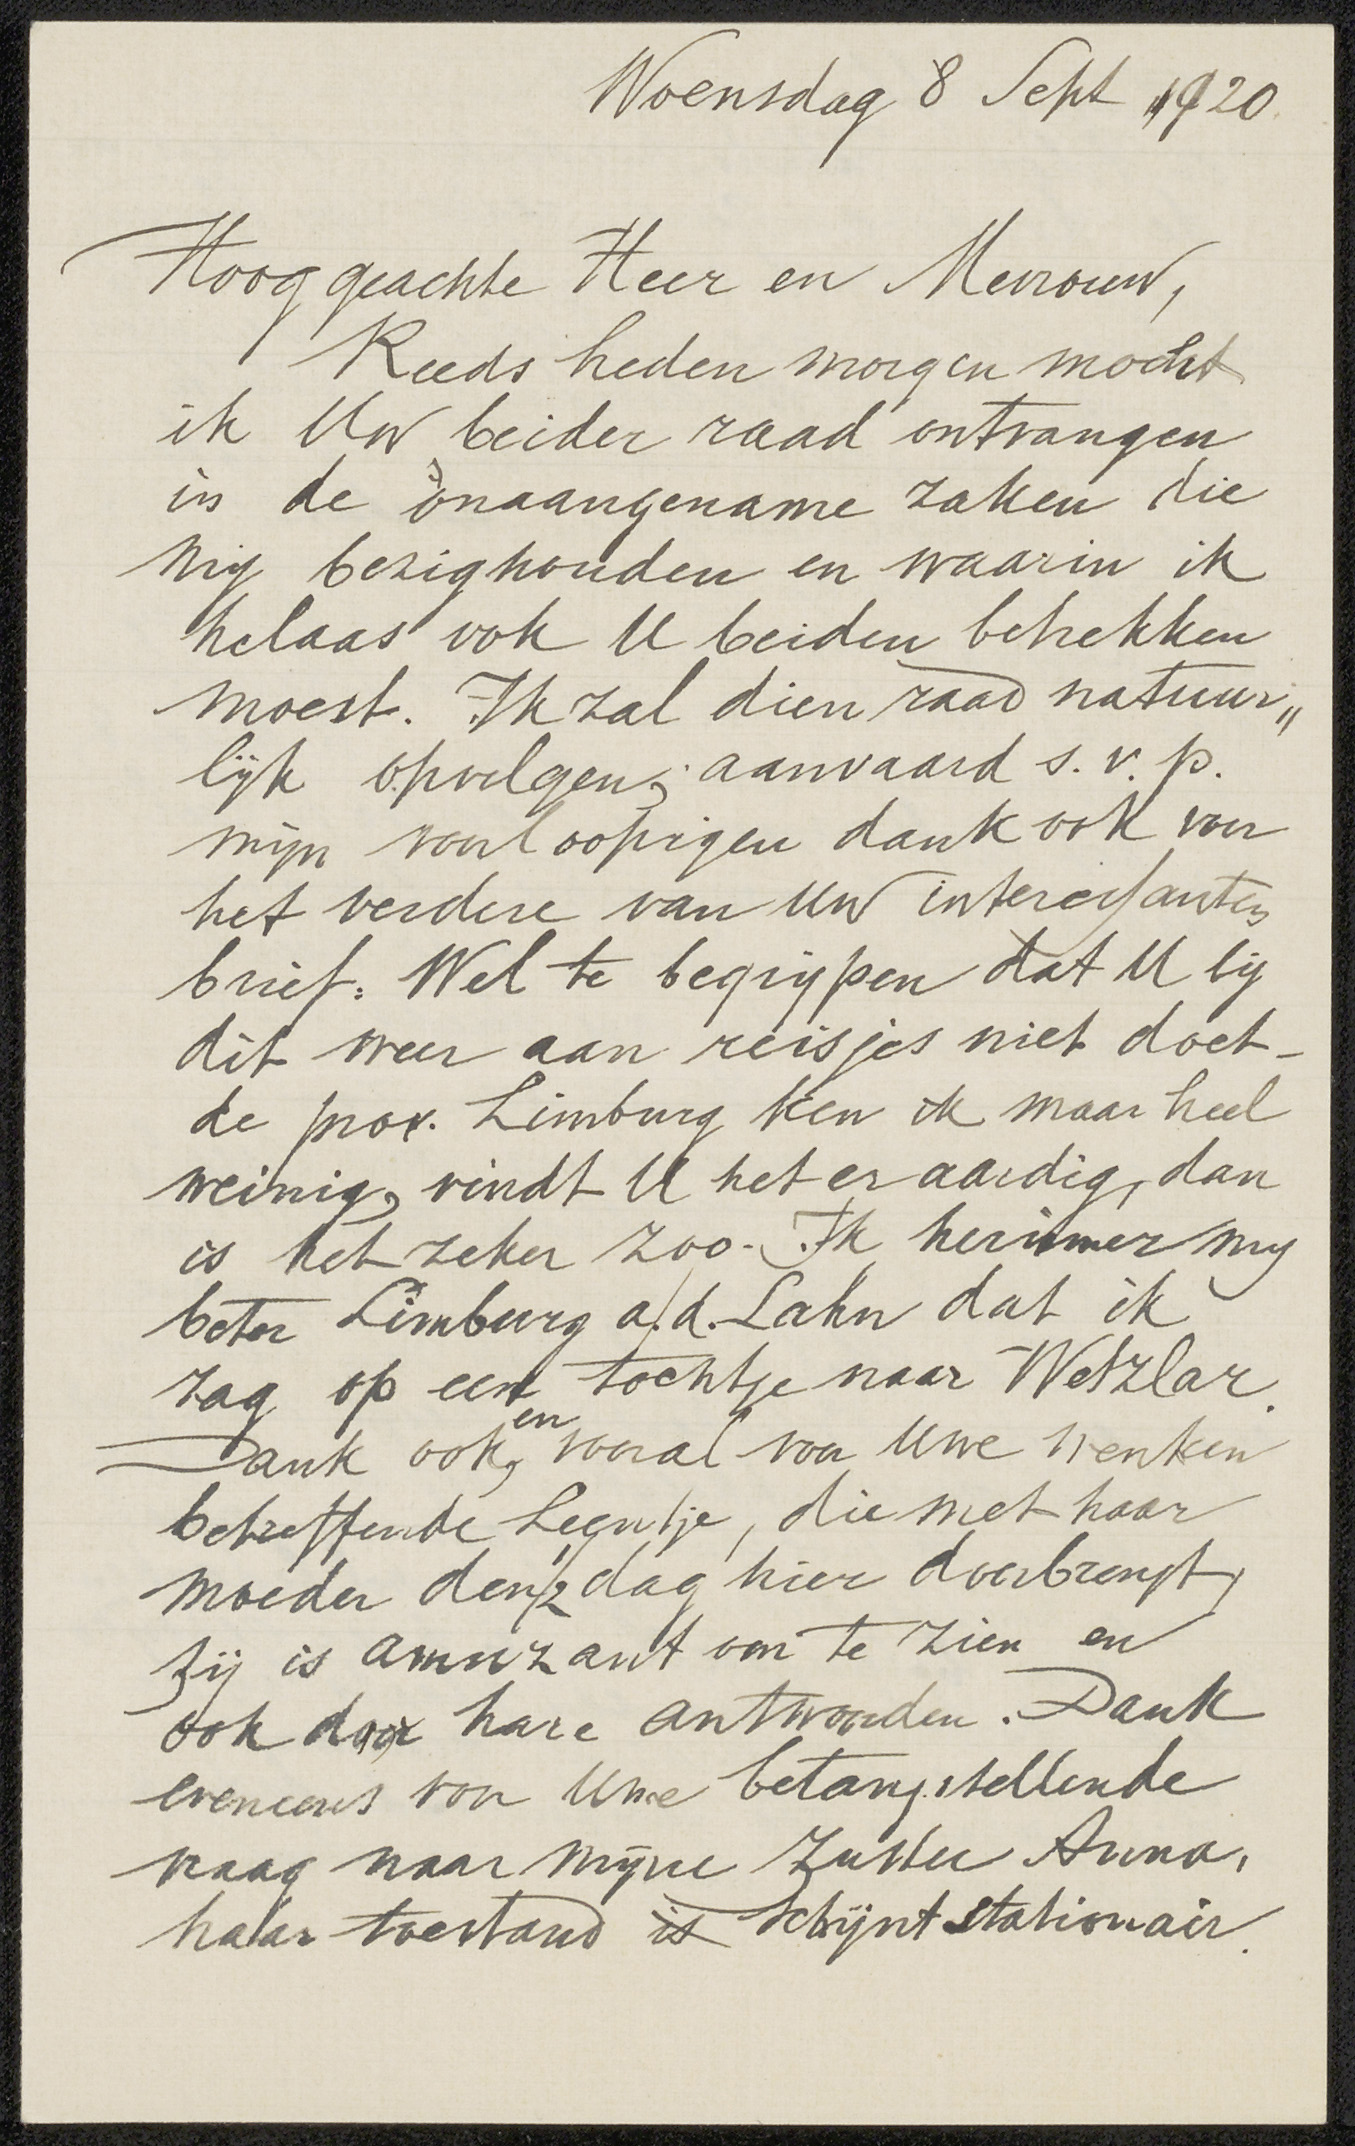 Woensdag 8 Sept 1920.
Hooggeachte Heer en Mevrouw,
Reeds heden morgen mocht
ik Uw beider raad ontvangen
in de onaangename zaken die
mij bezighouden en waarin ik
helaas ook U beiden betrekken
moest. Ik zal dien raad natuur„
lijk opvolgen; aanvaard s.v.p.
mijn voorloopigen dank ook voor
het verdere van Uw interessanten
brief. Wel te begrijpen dat U bij
dit weer aan reisjes niet doet -
de prov. Limburg ken ik maar heel
weinig, vindt U het er aardig, dan
is het zeker zoo. Ik herinner mij
beter Limburg a/d. Lahn dat ik
zag op een tochtje naar Wetzlar.
Dank ook, en vooral voor Uwe wenken
betreffende Leentje, die met haar
moeder den ½ dag hier doorbrengt,
zij is amuzant om te zien en
ook door hare antwoorden. Dank
eveneens voor Uwe belangstellende
vraag naar mijne zuster Anna,
haar toestand is schijnt stationair.